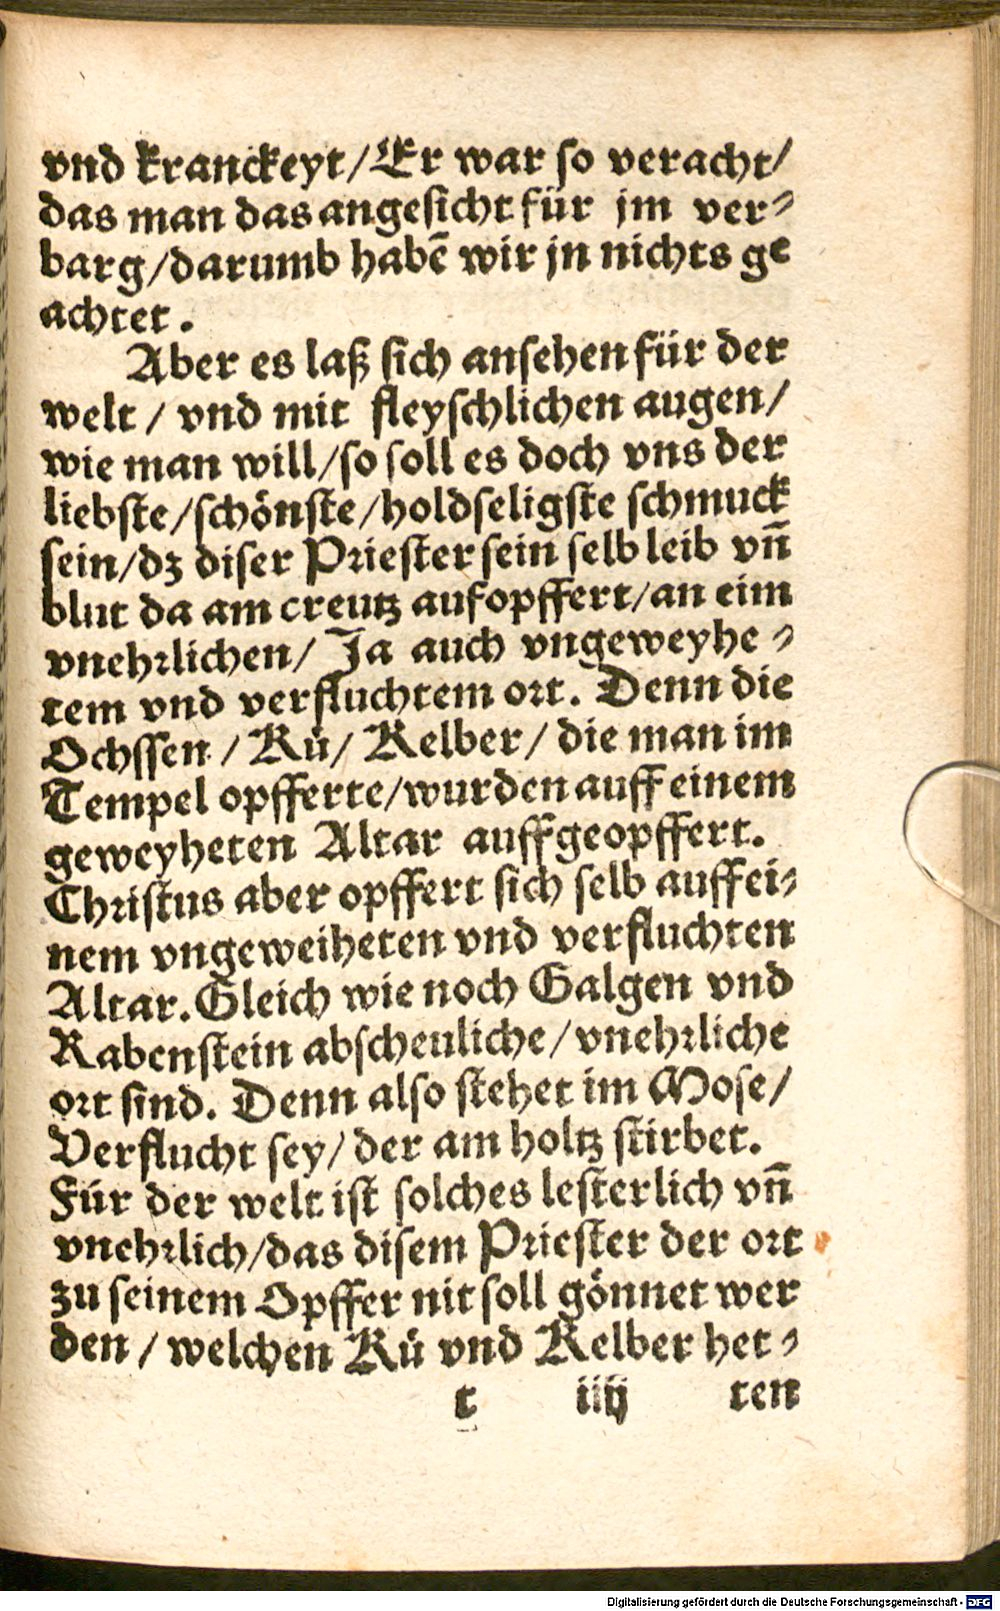 vnd kranckeyt/Er war so veracht/
das man das angesicht für jm ver⸗
barg/darumb habē wir jn nichts ge
achtet.
Aber es laß sich ansehen für der
welt / vnd mit fleyschlichen augen/
wie man will/so soll es doch vns der
liebste/schönste/holdseligste schmuck
sein/dz diser Priester sein selb leib vñ
blut da am creutz aufopffert/an eim
vnehrlichen/ Ja auch vngeweyhe⸗
tem vnd verfluchtem ort. Denn die
Ochssen / Kü/ Kelber/ die man im
Tempel opfferte/wurden auff einem
geweyheten Altar auffgeopffert.
Christus aber opffert sich selb auff ei⸗
nem vngeweiheten vnd verfluchten
Altar. Gleich wie noch Galgen vnd
Rabenstein abscheuliche/vnehrliche
ort sind. Denn also stehet im Mose/
Verflucht sey/ der am holtz stirbet.
Für der welt ist solches lesterlich vñ
vnehrlich/das disem Priester der ort
zu seinem Opffer nit soll gönnet wer
den / welchen Kü vnd Kelber het⸗
t iiij ten
Digitalisierung gefördert durch die Deutsche Forschungsgemeinschaft - DFG